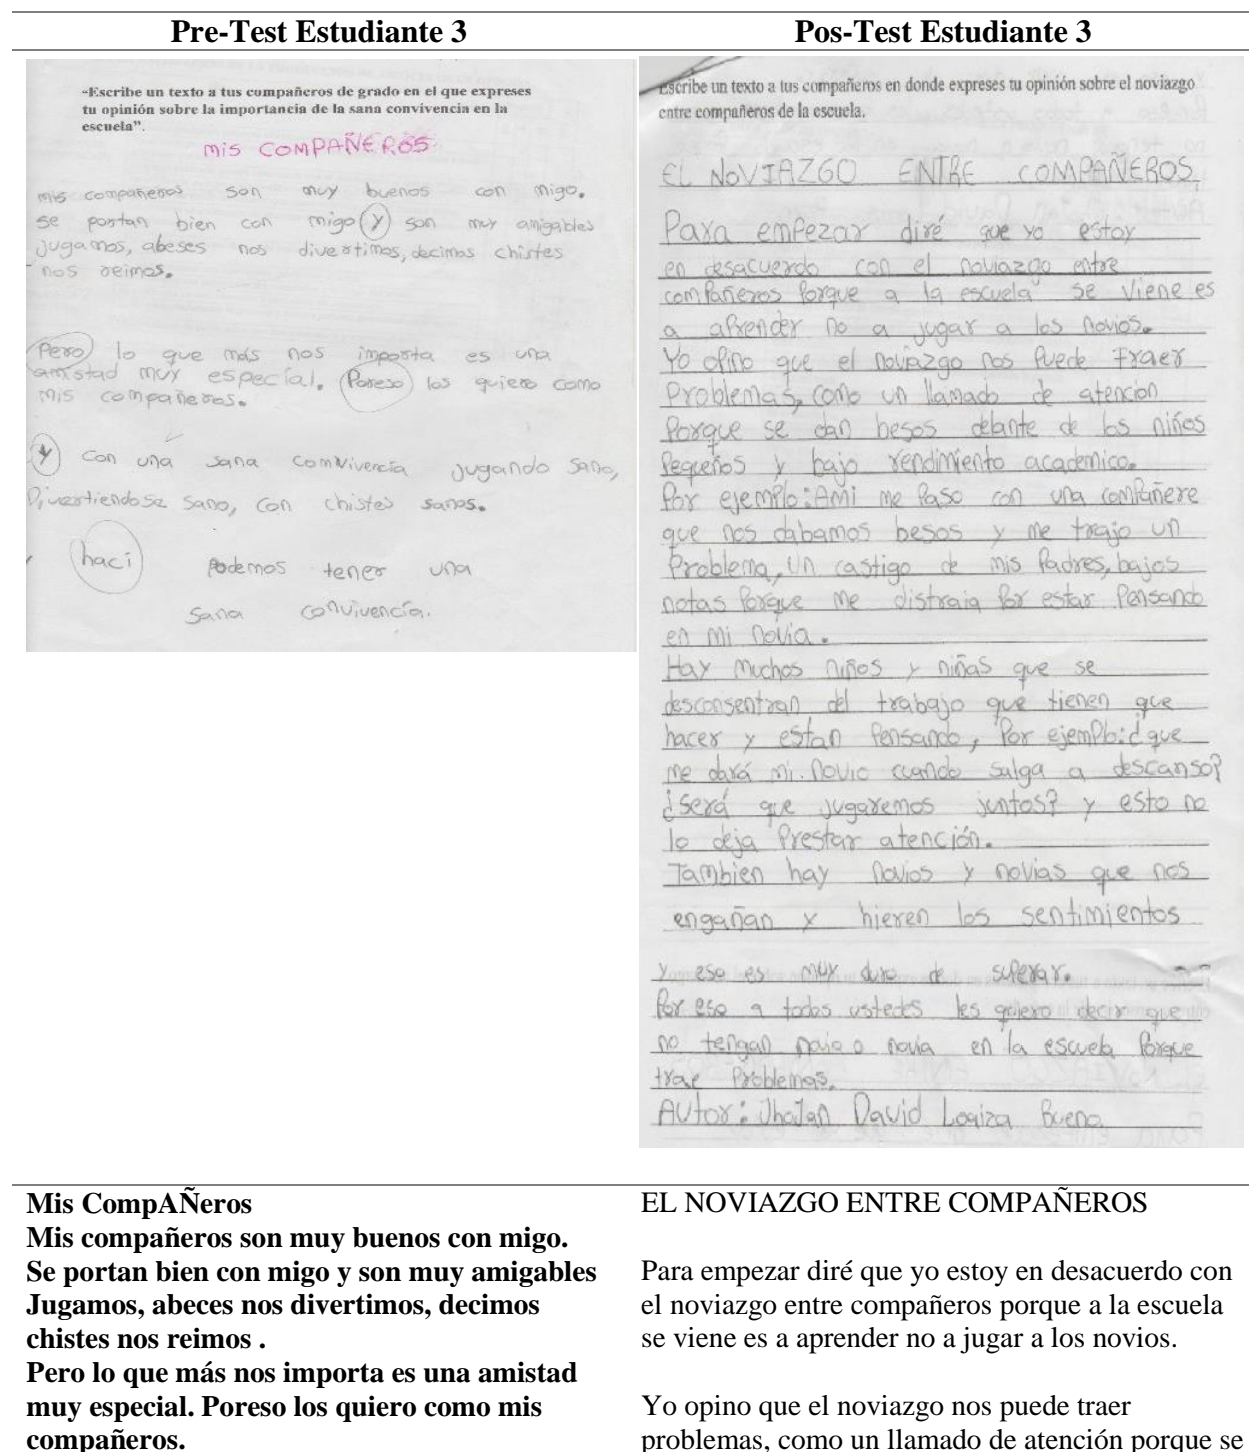 Pre-Test Estudiante 3
Pos-Test Estudiante 3
"Escribe un texto a tus compañeros de grado en el que expreses
tu opinión sobre la importancia de la sana convivencia en la
escuela".
mis COMPAÑEROS
mis compañeros son muy buenos con migo.
se portan bien con migo y son muy amigables
jugamos, abeses nos divertimos, decimos chistes
nos reimos.
Pero lo que más nos importa es una
amistad muy especial. Poreso los quiero como
mis compañeros.
y con una sana comvivencia jugando sano,
Divertiendose sano, con chistes sanos.
haci podemos tener una
sana convivencía.
Escribe un texto a tus compañeros en donde expreses tu opinión sobre el noviazgo
entre compañeros de la escuela.
EL NOVIAZGO ENTRE COMPAÑEROS
Para empezar diré que yo estoy
en desacuerdo con el noviazgo entre
compañeros porque a la escuela se viene es
a aprender no a jugar a los novios.
Yo opino que el noviazgo nos puede traer
Problemas, como un llamado de atención
porque se dan besos delante de los niños
pequeños y bajo rendimiento academico.
Por ejemplo: Ami me paso con una compañere
que nos dabamos besos y me trajo un
Problema, un castigo de mis padres, bajos
notas porque me distraia por estar pensando
en mi novia.
Hay muchos niños y niñas que se
desconsentran del trabajo que tienen que
hacer y estan pensando, por ejemplo: ¿que
me dará mi novio cuando salga a descanso?
¿será que jugaremos juntos? y esto no
lo deja prestar atención.
Tambien hay novios y novias que nos
engañan y hieren los sentimientos
y eso es muy duro de superar.
Por eso a todos ustedes les quiero decir que
no tengan novio o novia en la escuela porque
trae problemas.
Autor: Jhojan David Loaiza Bueno
Mis CompAÑeros
Mis compañeros son muy buenos con migo.
Se portan bien con migo y son muy amigables
Jugamos, abeces nos divertimos, decimos
chistes nos reimos .
Pero lo que más nos importa es una amistad
muy especial. Poreso los quiero como mis
compañeros.
EL NOVIAZGO ENTRE COMPAÑEROS
Para empezar diré que yo estoy en desacuerdo con
el noviazgo entre compañeros porque a la escuela
se viene es a aprender no a jugar a los novios.
Yo opino que el noviazgo nos puede traer
problemas, como un llamado de atención porque se